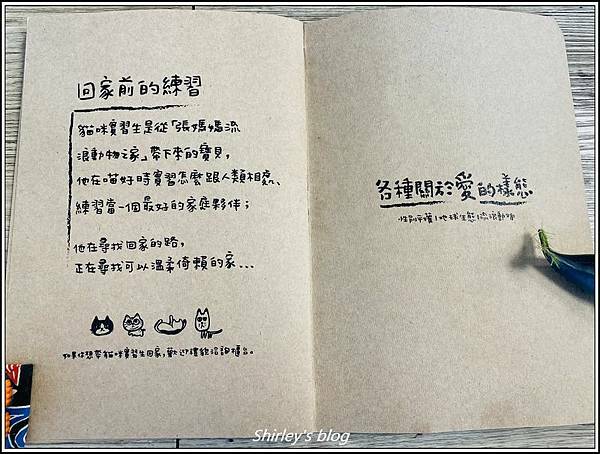 回家前的練習
貓咪實習生是從「張媽媽流
浪動物之家」帶下來的寶貝，
他在喵好時實習怎麼跟人類相處、
練習當一個最好的家庭夥伴；
他在尋找回家的路，
正在尋找可以溫柔倚賴的家...
如果你想帶貓咪實習生回家，歡迎禮貌洽詢櫃台。
各種關於愛的樣態
性別平權|地球生態|流浪動物
Shirley's blog